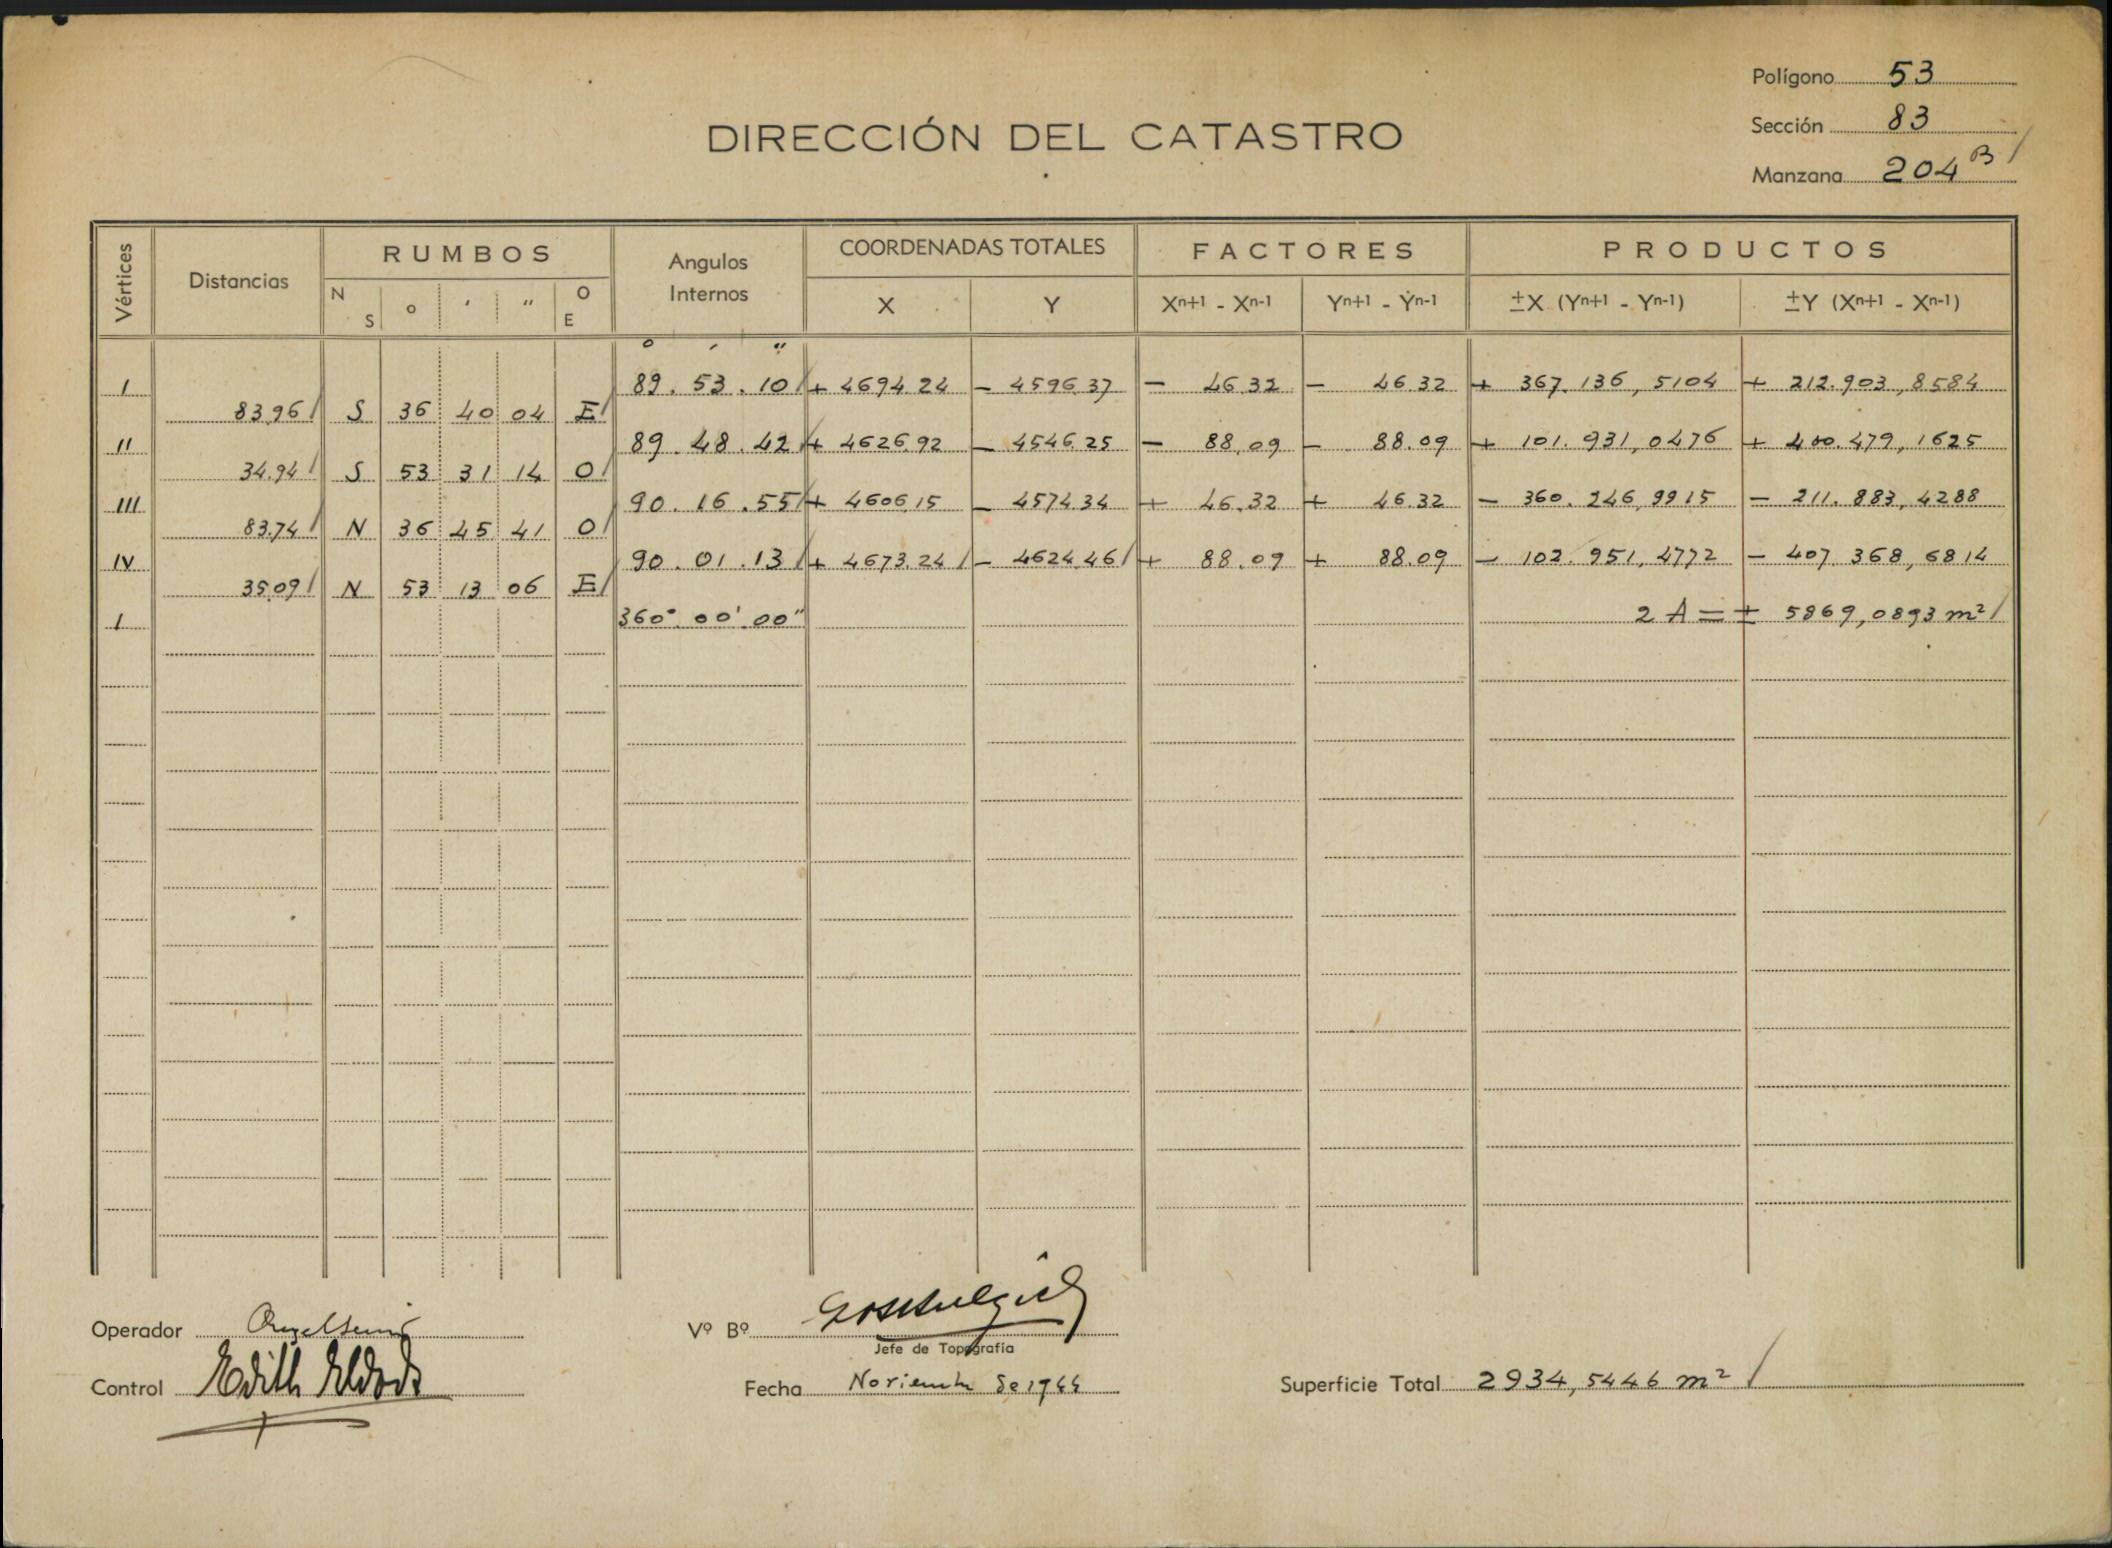 Polígono 53
Sección 83
DIRECCIÓN DEL CATASTRO
Manzana 204 B /
Vértices Distancias RUMBOS Angulos Internos COORDENADAS TOTALES FACTORES PRODUCTOS
N S ° ' " O E X Y Xn+1 - Xn-1 Yn+1 - Yn-1 ±X (Yn+1 - Yn-1) ±Y (Xn+1 - Xn-1)
° ' "
I 89. 53. 10 / + 4694.24 - 4596.37 - 46.32 - 46.32 + 367.136, 5104 + 212.903, 8584
83.96 / S 36 40 04 E /
II 89. 48. 42 + 4626.92 - 4546.25 - 88.09 - 88.09 + 101.931, 0476 + 400.479, 1625
34.94 / S 53 31 14 O /
III 90. 16. 55 / + 4606.15 - 4574.34 + 46.32 + 46.32 - 360.246, 9915 - 211.883, 4288
83.74 / N 36 45 41 O /
IV 90. 01. 13 / + 4673.24 / - 4624.46 / + 88.09 + 88.09 - 102.951, 4772 - 407.368, 6814
35.09 / N 53 13 06 E /
I 360° 00' 00" 2 A = ± 5869,0893 m² /
Operador
Vº Bº
Jefe de Topografía
Control Edith
Fecha Noviembre de 1944
Superficie Total 2934,5446 m² /